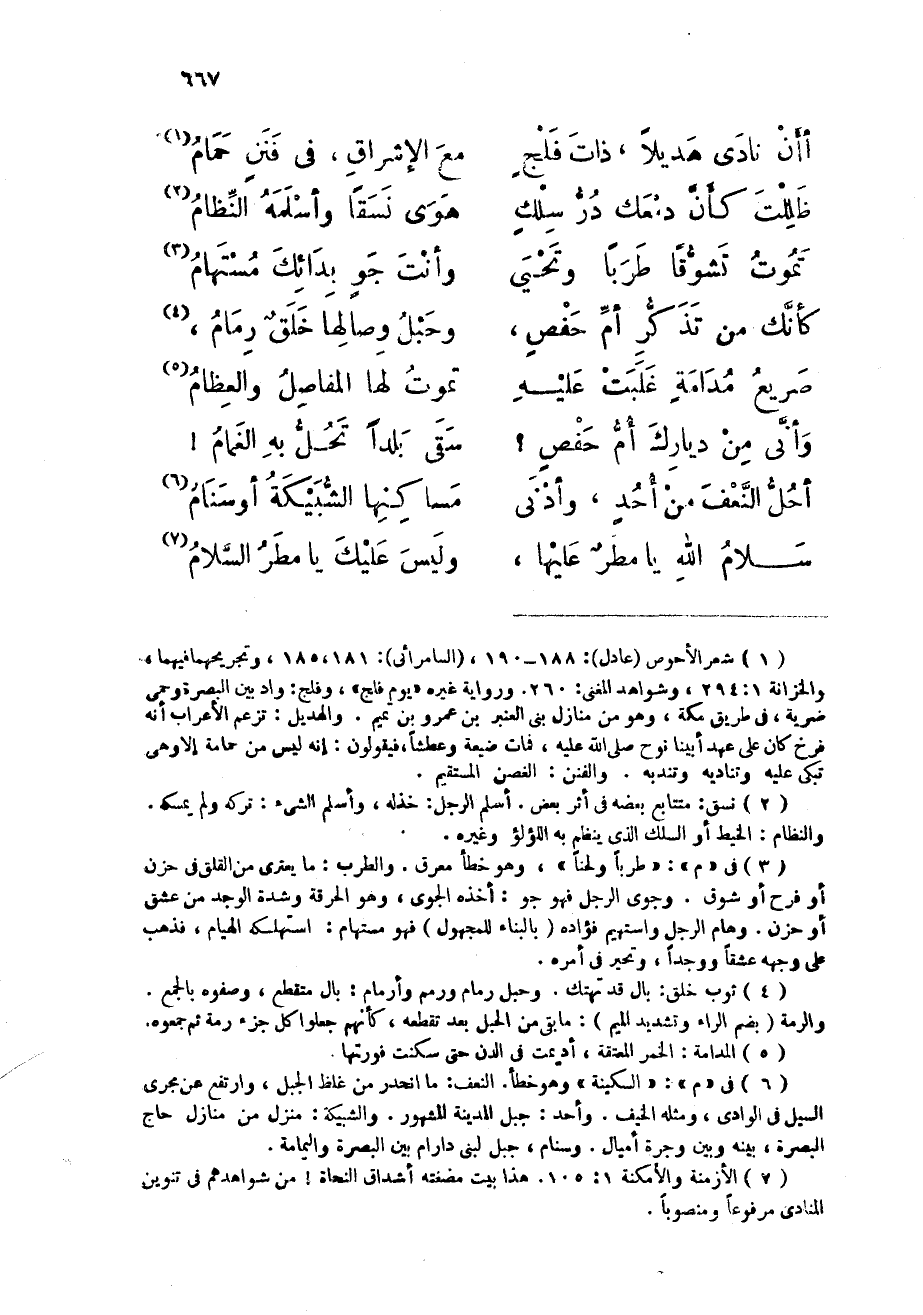 ٦٦٧
أَأَنْ نادَى هَديلاً ، ذاتَ فَلْجٍ    معَ الإشراقِ ، فى فَنَنٍ حَمَامُ (١)
ظَلِلْتَ كَأَنَّ دمْعَك دُرُّ سِلْكٍ    هَوَى نَسَقًا وأسْلَمَهُ النِّظامُ (٢)
تَمُوتُ تَشوُّقًا طَرَبًا وتَحْيَى    وأنْتَ جَوٍ بِدَائِكَ مُسْتَهامُ (٣)
كأنَّك من تَذَكُّرِ أمِّ حَفْصٍ ،    وحَبْلُ وِصالِها خَلَقٌ رِمَامُ ، (٤)
صَريعُ مُدَامَةٍ غَلَبَتْ عَلَيْـــهِ    تموتُ لها المفاصِلُ والعِظامُ (٥)
وَأنَّى مِنْ ديارِكَ أُمُّ حَفْصٍ ؟    سَقَى بَلداً تَحُـلُّ بهِ الغَمامُ !
أحُلُّ النَّعْفَ منْ أُحُدٍ ، وأدْنَى    مَساكِنِها الشُّبَيْكَةُ أوسَنَامُ (٦)
سَـــلامُ اللهِ يا مطَرٌ عَلَيْها ،    ولَيسَ عَلَيْكَ يا مطَرُ السَّلامُ (٧)
( ١ ) شعر الأحوص (عادل): ١٨٨ـ١٩٠ ، (السامرائى): ١٨١، ١٨٥ ، وتخريجهما فيهما ،
والخزانة ١: ٢٩٤ ، وشواهد المغنى: ٢٦٠. ورواية غيره «يوم فلج» ، وفلج: واد بين البصرة وحمى
ضرية ، فى طريق مكة ، وهو من منازل بنى العنبر بن عمرو بن تميم . والهديل : تزعم الأعراب أنه
فرخ كان على عهد أبينا نوح صلى الله عليه ، فمات ضيعة وعطشاً، فيقولون : إنه ليس من حمامة إلا وهى
تبكى عليه وتناديه وتندبه . والفنن : الغصن المستقيم .
( ٢ ) نسق: متتابع بعضه فى أثر بعض . أسلم الرجل: خذله ، وأسلم الشىء : تركه ولم يمسكه .
والنظام : الخيط أو السلك الذى ينظم به اللؤلؤ وغيره .
( ٣ ) فى «م» : «طرباً ولحناً» ، وهو خطأ معرق . والطرب : ما يعترى من القلق فى حزن
أو فرح أو شوق . وجوى الرجل فهو جو : أخذه الجوى ، وهو الحرقة وشدة الوجد من عشق
أو حزن . وهام الرجل واستهيم فؤاده ( بالبناء للمجهول ) فهو مستهام : استهلكه الهيام ، فذهب
على وجهه عشقاً ووجداً ، وتحير فى أمره .
( ٤ ) ثوب خلق: بال قد تهتك . وحبل رمام ورمم وأرمام : بال متقطع ، وصفوه بالجمع .
والرمة ( بضم الراء وتشديد الميم ) : ما بقى من الحبل بعد تقطعه ، كأنهم جعلوا كل جزء رمة ثم جمعوه.
( ٥ ) المدامة : الخمر المعتقة ، أديمت فى الدن حتى سكنت فورتها .
( ٦ ) فى «م» : «السكينة» وهو خطأ. النعف: ما انحدر من غلظ الجبل ، وارتفع عن مجرى
السيل فى الوادى ، ومثله الخيف . وأحد : جبل المدينة المشهور . والشبيكة : منزل من منازل حاج
البصرة ، بينه وبين وجرة أميال . وسنام ، جبل لبنى دارام بين البصرة واليمامة .
( ٧ ) الأزمنة والأمكنة ١: ١٠٥. هذا بيت مضغته أشداق النحاة ! من شواهدهم فى تنوين
المنادى مرفوعاً ومنصوباً .